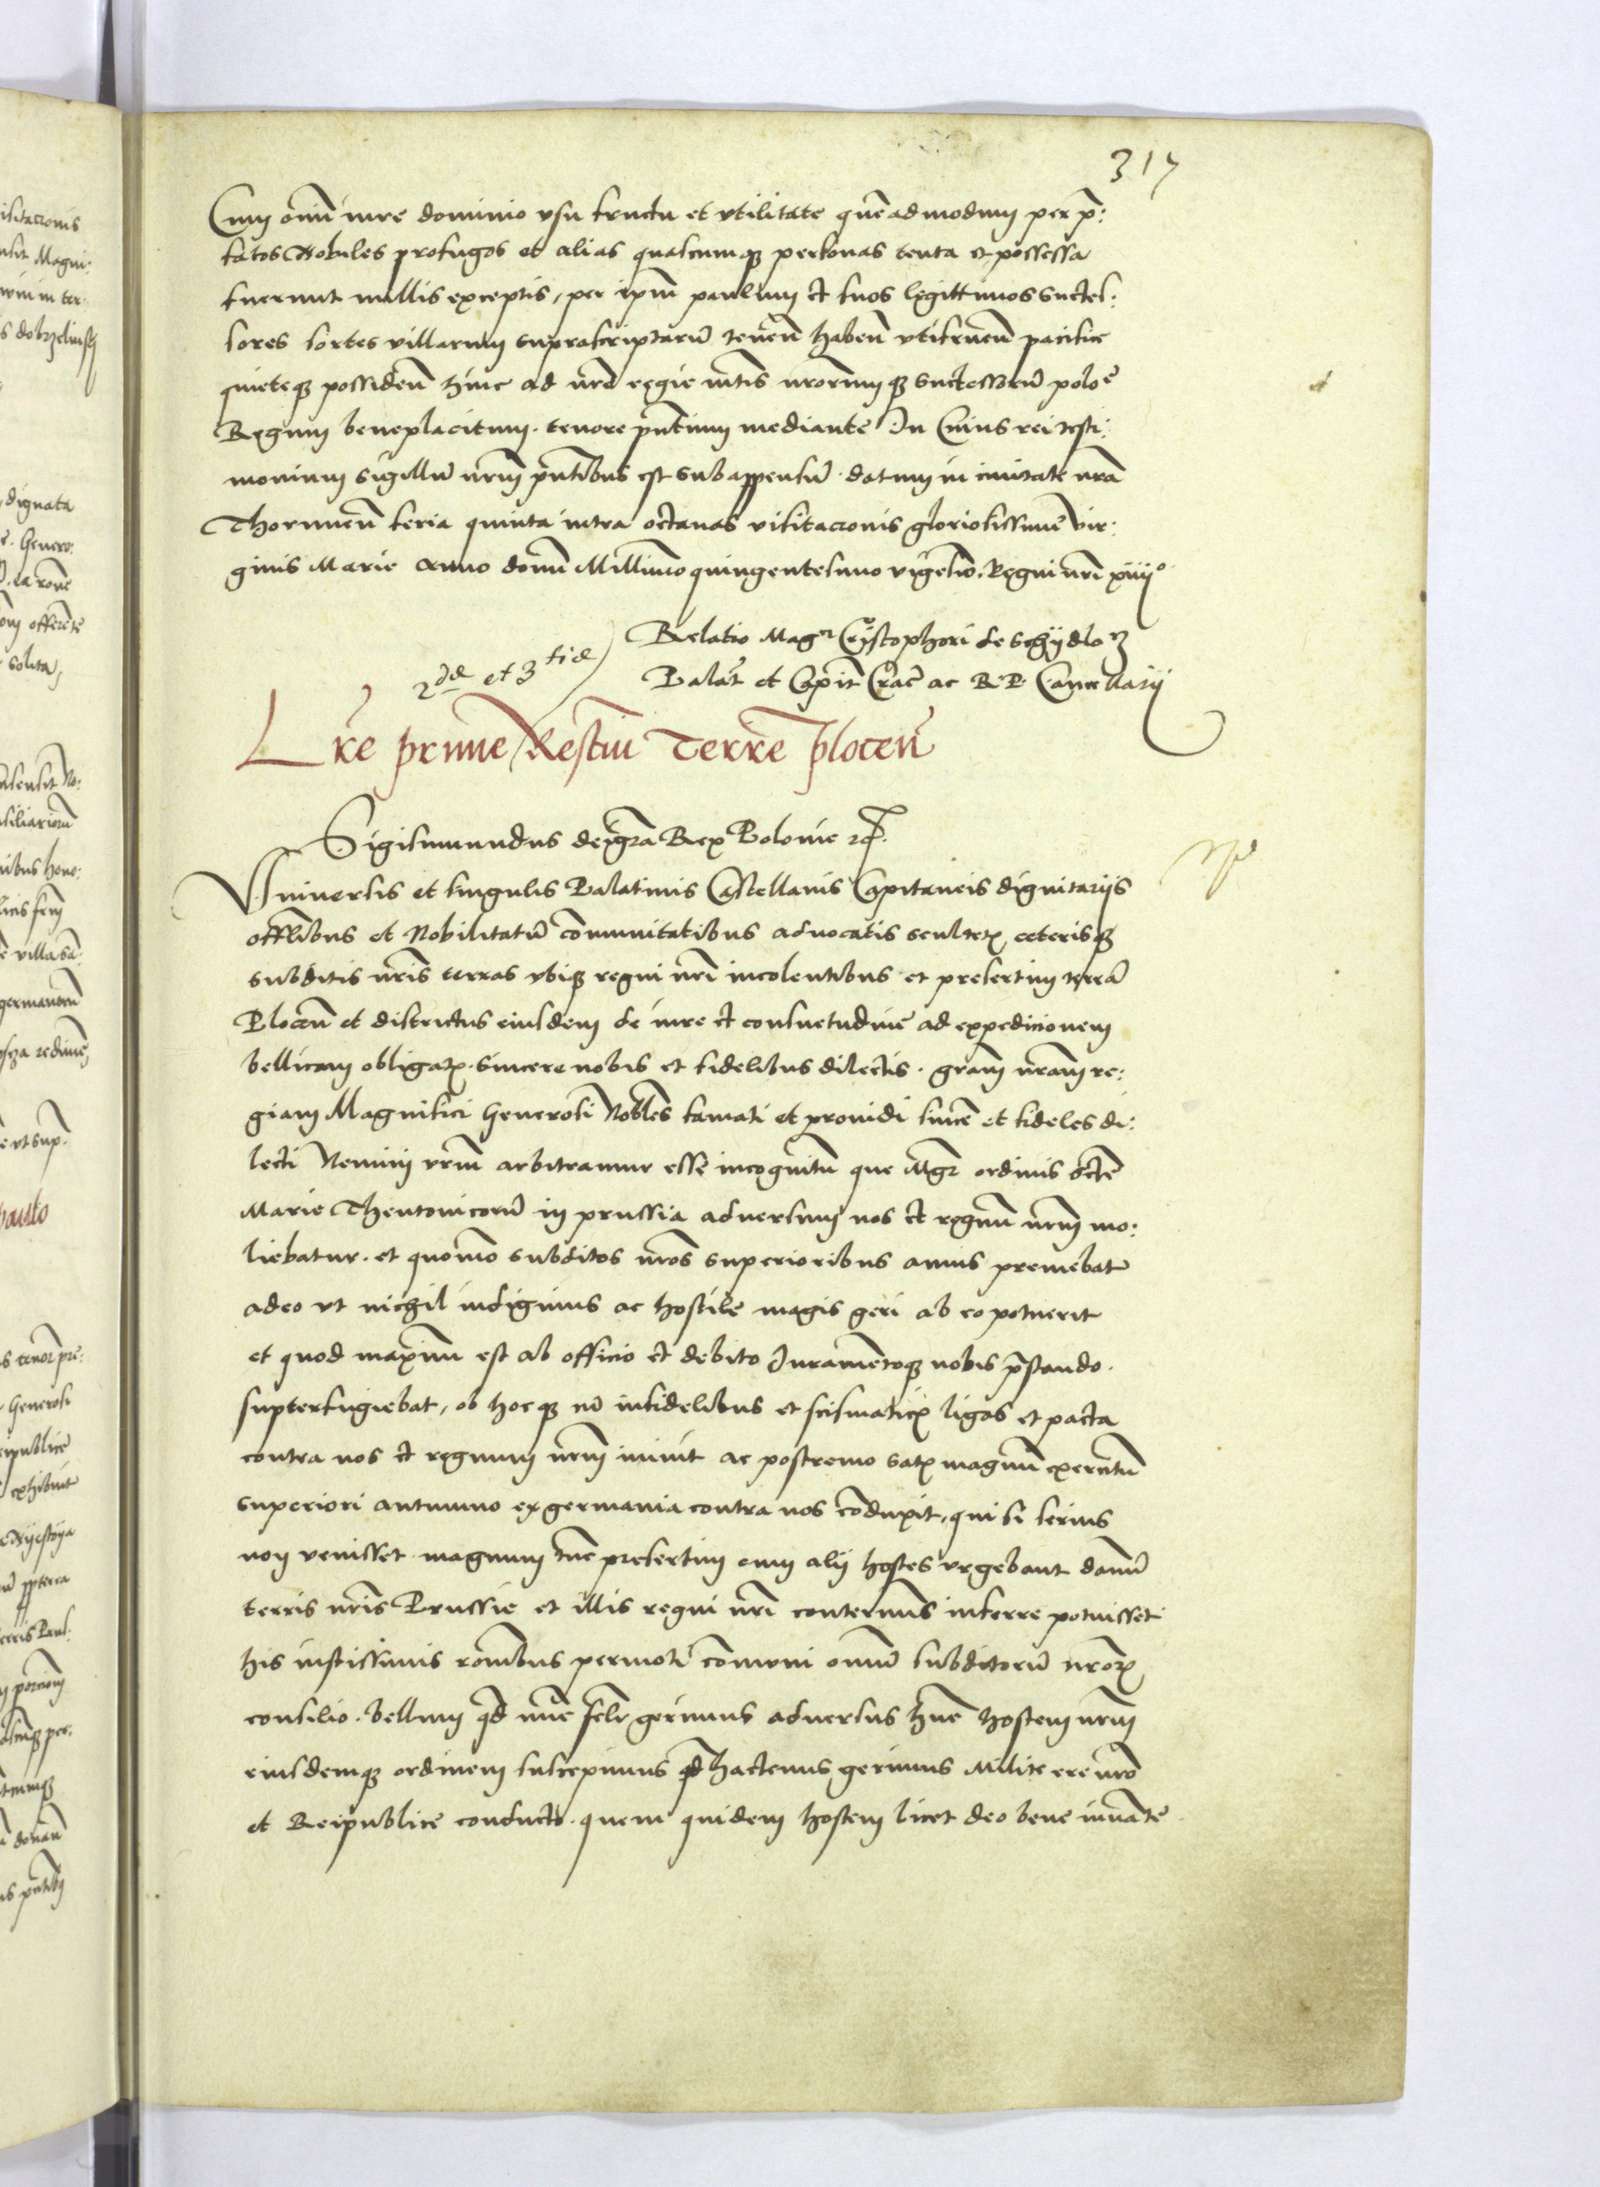 317
Cum omni iure dominio usu fructu et utilitate quēadmodum per p̄:
fatos Nobiles profugos et alias quascumq personas tenta et possessa
fuerunt nullis exceptis, per ipm̄ paulum et suos legittimos succes:
sores sortes villarum suprascriptarū tenen̄ haben̄ utifruen̄ pacifice
quieteq possiden̄ huc ad nr̄e regie mtis nrorumq successorū polo͞e
Regum beneplacitum. tenore pn̄tium mediante In Cuius rei testi:
monium sigillū nrm̄ pn̄tibus est subappensū. datum in civitate nr̄a
Thorunen̄ feria quinta intra octavas visitacionis gloriosissime vir:
ginis Marie Anno domī Millīmo quingentesimo vigesīo. Regni nrī xiiiiº
Relatio Magci Cristophori de Schydlo
Palāt et Capit Crac̄ ac R P Cancellarij
2dę et 3tię
Lr̄e prime Restiu Terre plocen̄
Sigismundus dei gra Rex Polonie
Universis et singulis Palatinis Castellanis Capitaneis dignitarijs
offlibus et Nobilitatū comunitatibus advocatis scultet ceterisq
subditis nr̄is terras ubiq regni nrī incolentibus et presertim terrā
Plocen̄ et districtus eiusdem de iure et consuetudine ad expedicionem
bellicam obligat. sincere nobis et fidelibus dilectis. gram̄ nram̄ re:
giam Magnifici Generosi Nobiles famati et providi sincē et fideles di:
lecti Nemini vrm̄ arbitramur esse incognitū que Mgr ordinis scte
Marie Theutonicorū in prussia adversum nos et regnū nrm̄ mo:
liebatur. et quomō subditos nr̄os superioribus annis premebat
adeo ut nichil indignius ac hostile magis geri ab eo potuerit
et quod maximū est ab officio et debito Iuramētoq nobis p̄stando.
supterfugiebat, ob hocq cū infidelibus et scismatic ligas et pacta
contra nos et regnum nrm̄ iniuit ac postremo satis magnū exercitū
superiori autumno ex germania contra nos cōduxit, qui si serius
non venisset magnum tūc presertim cum alij hostes urgebant dānū
terris nr̄is Prussie et illis regni nrī conterminis inferre potuisset
his iustissimis rōnibus permoti cōmuni omniū subditorū nror
consilio. bellum qd nūc gerimus adversus hūc hostem nrm̄
eiusdemq ordinem suscepimus qd hactenus gerimus Milite ere nro
et Reipublice conducto. quem quidem hostem licet deo bene iuvāte